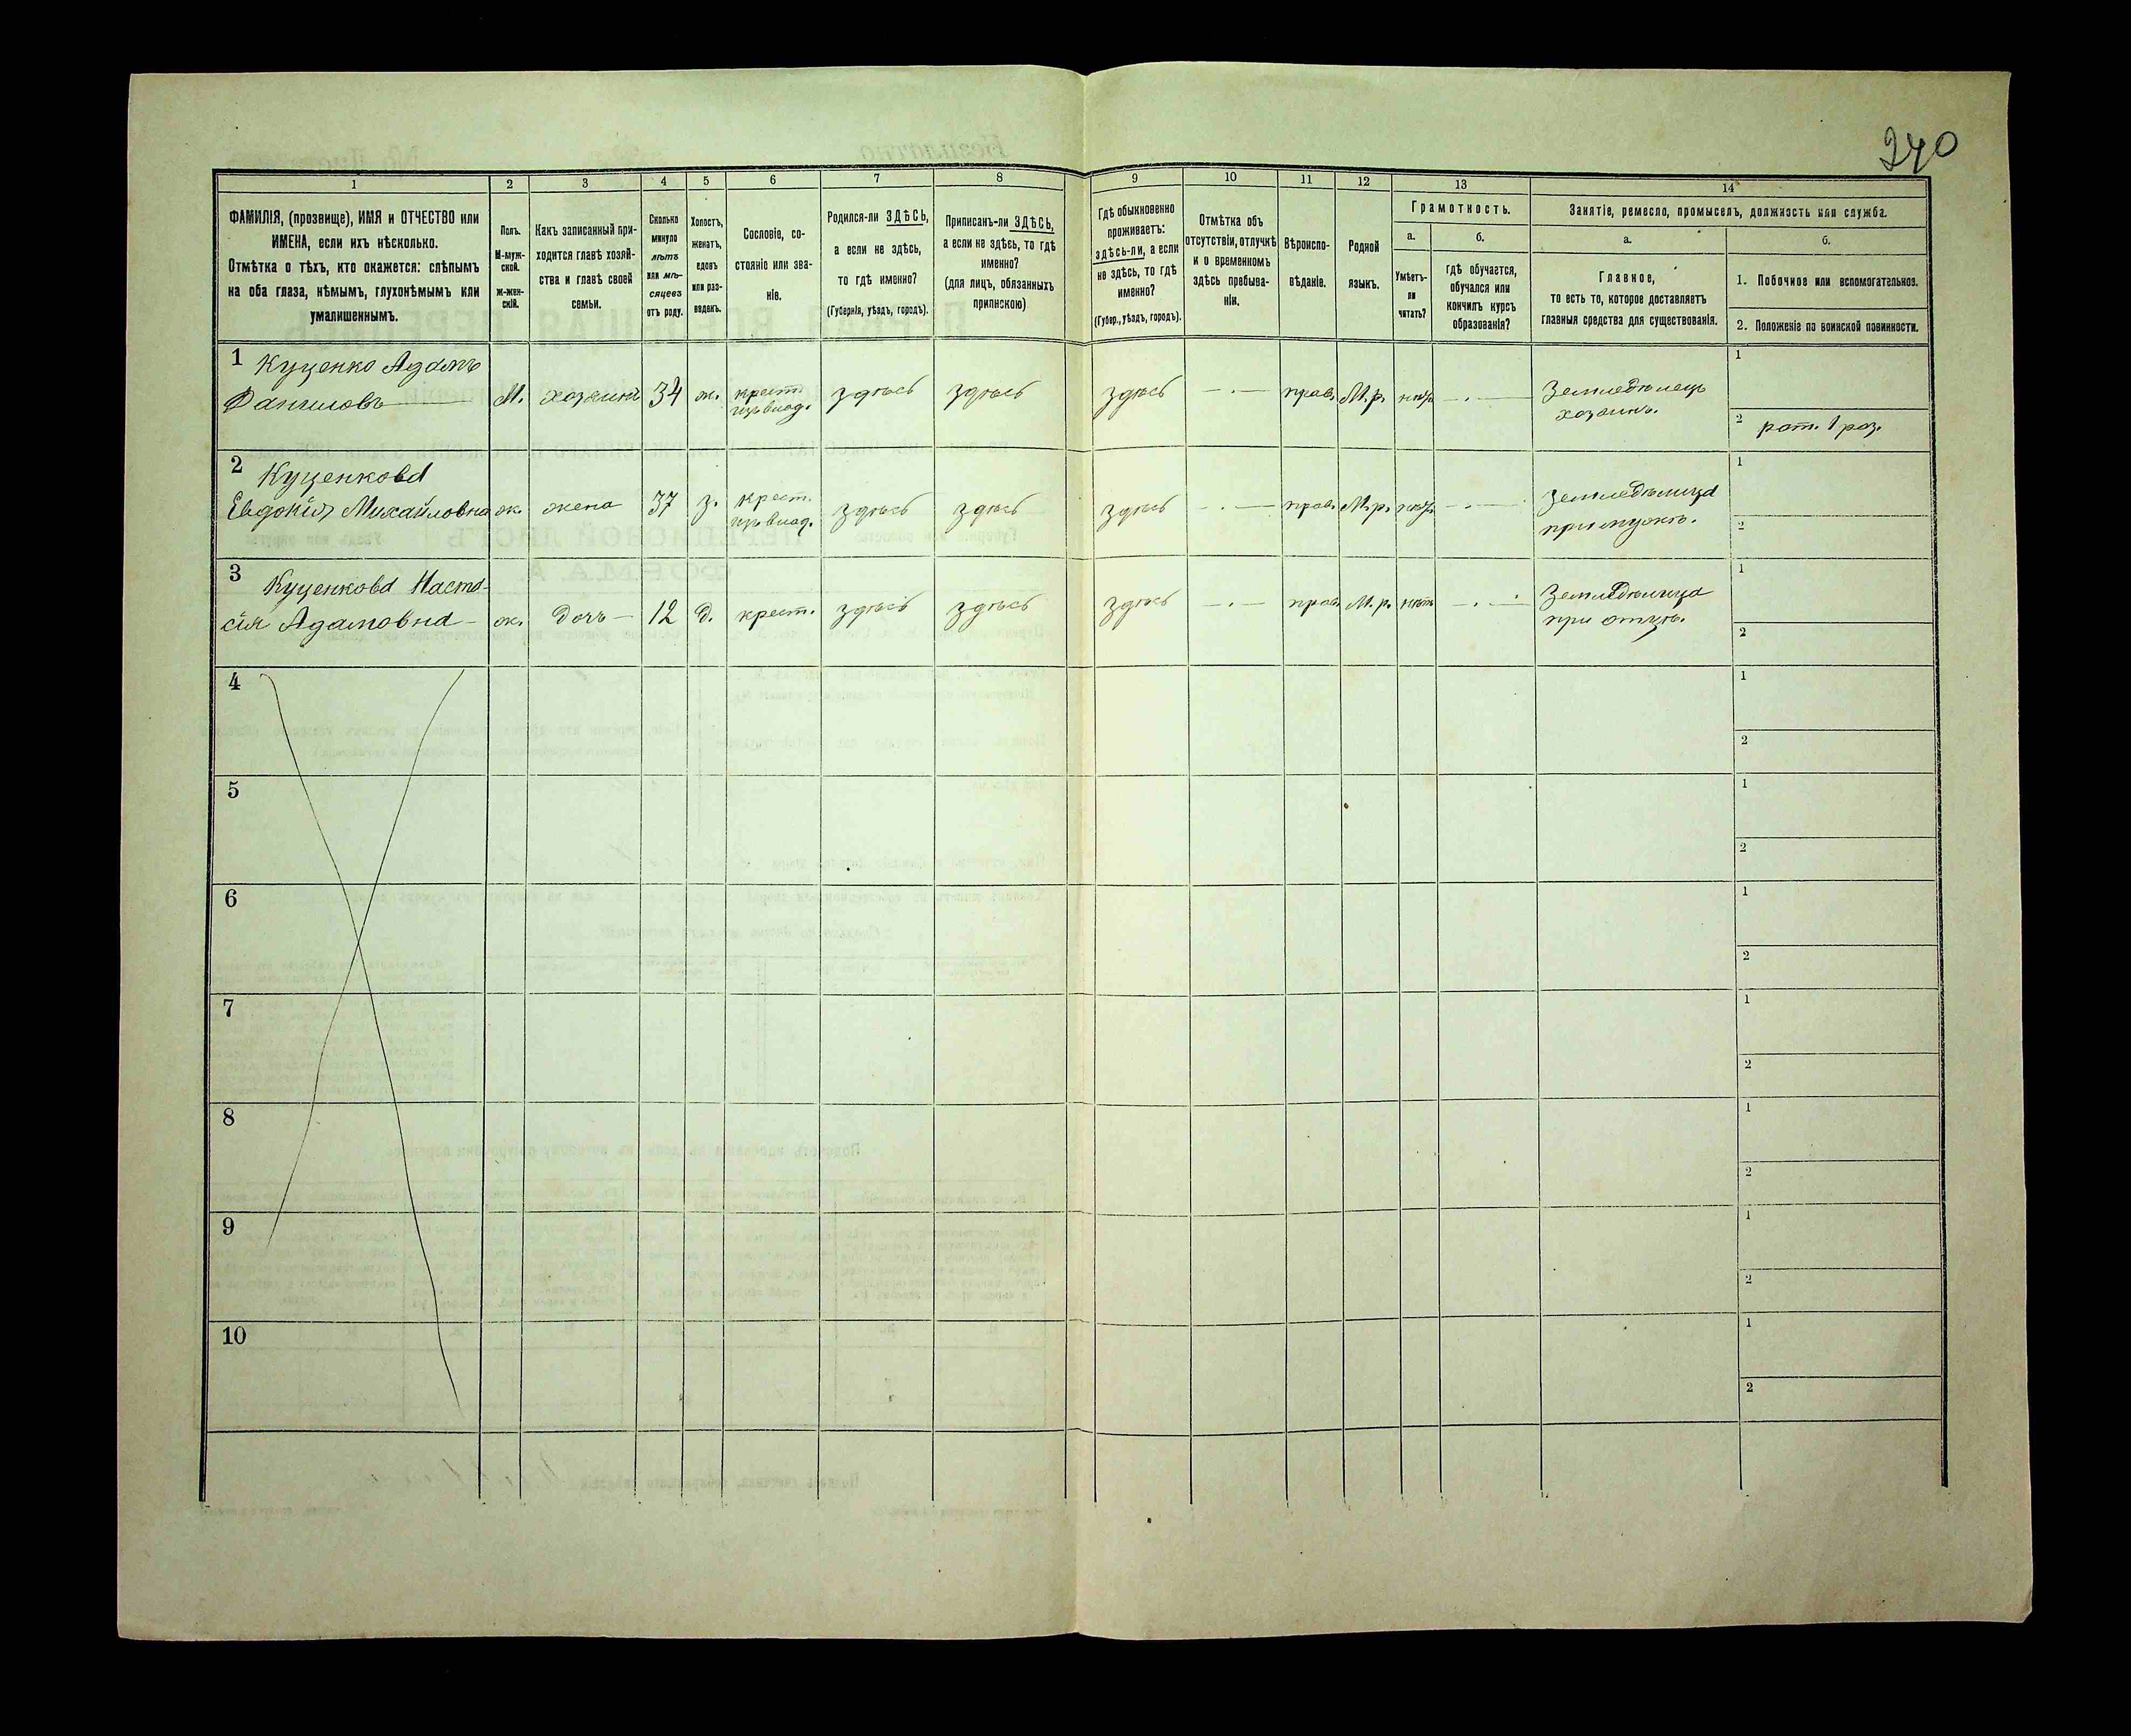 240
1 2 3 4 5 6 7 8 9 10 11 12 13 14
ФАМИЛІЯ, (прозвище), ИМЯ и ОТЧЕСТВО или
ИМЕНА, если ихъ нѣсколько.
Отмѣтка о тѣхъ, кто окажется: слѣпымъ
на оба глаза, нѣмымъ, глухонѣмымъ или
умалишеннымъ.
Полъ.
М-муж-
ской.
ж-жен-
скій.
Какъ записанный при-
ходится главѣ хозяй-
ства и главѣ своей
семьи.
Сколько
минуло
лѣтъ
или мѣ-
сяцевъ
отъ роду.
Холостъ,
женатъ,
вдовъ
или раз-
веденъ.
Сословіе, со-
стояніе или зва-
ніе.
Родился-ли ЗДѢСЬ,
а если не здѣсь,
то гдѣ именно?
(Губернія, уѣздъ, городъ).
Приписанъ-ли ЗДѢСЬ,
а если не здѣсь, то гдѣ
именно?
(для лицъ, обязанныхъ
припискою)
Гдѣ обыкновенно
проживаетъ:
здѣсь-ли, а если
не здѣсь, то гдѣ
именно?
(Губер., уѣздъ, городъ).
Отмѣтка объ
отсутствіи, отлучкѣ
и о временномъ
здѣсь пребыва-
ніи.
Вѣроиспо-
вѣданіе.
Родной
языкъ.
Грамотность.
а.
Умѣетъ-
ли
читать?
б.
гдѣ обучается,
обучался или
кончилъ курсъ
образованія?
Занятіе, ремесло, промыселъ, должность или служба.
а.
Главное,
то есть то, которое доставляетъ
главныя средства для существованія.
б.
1. Побочное или вспомогательное.
2. Положеніе по воинской повинности.
1 Куценко Адамъ
Даниловъ М. хозяинъ 34 ж. крест. здѣсь здѣсь здѣсь прав. М.р. нѣтъ Земледѣлецъ
изъ влад. хозяинъ.
1
2 рат. 1 раз.
2 Куценкова
Евдокія Михайловна ж. жена 37 з. крест. здѣсь здѣсь здѣсь прав. М.р. нѣтъ Земледѣлица
изъ влад. при мужѣ.
1
2
3 Куценкова Наста-
сія Адамовна ж. дочь 12 д. крест. здѣсь здѣсь здѣсь прав. М.р. нѣтъ Земледѣлица
при отцѣ.
1
2
4
1
2
5
1
2
6
1
2
7
1
2
8
1
2
9
1
2
10
1
2